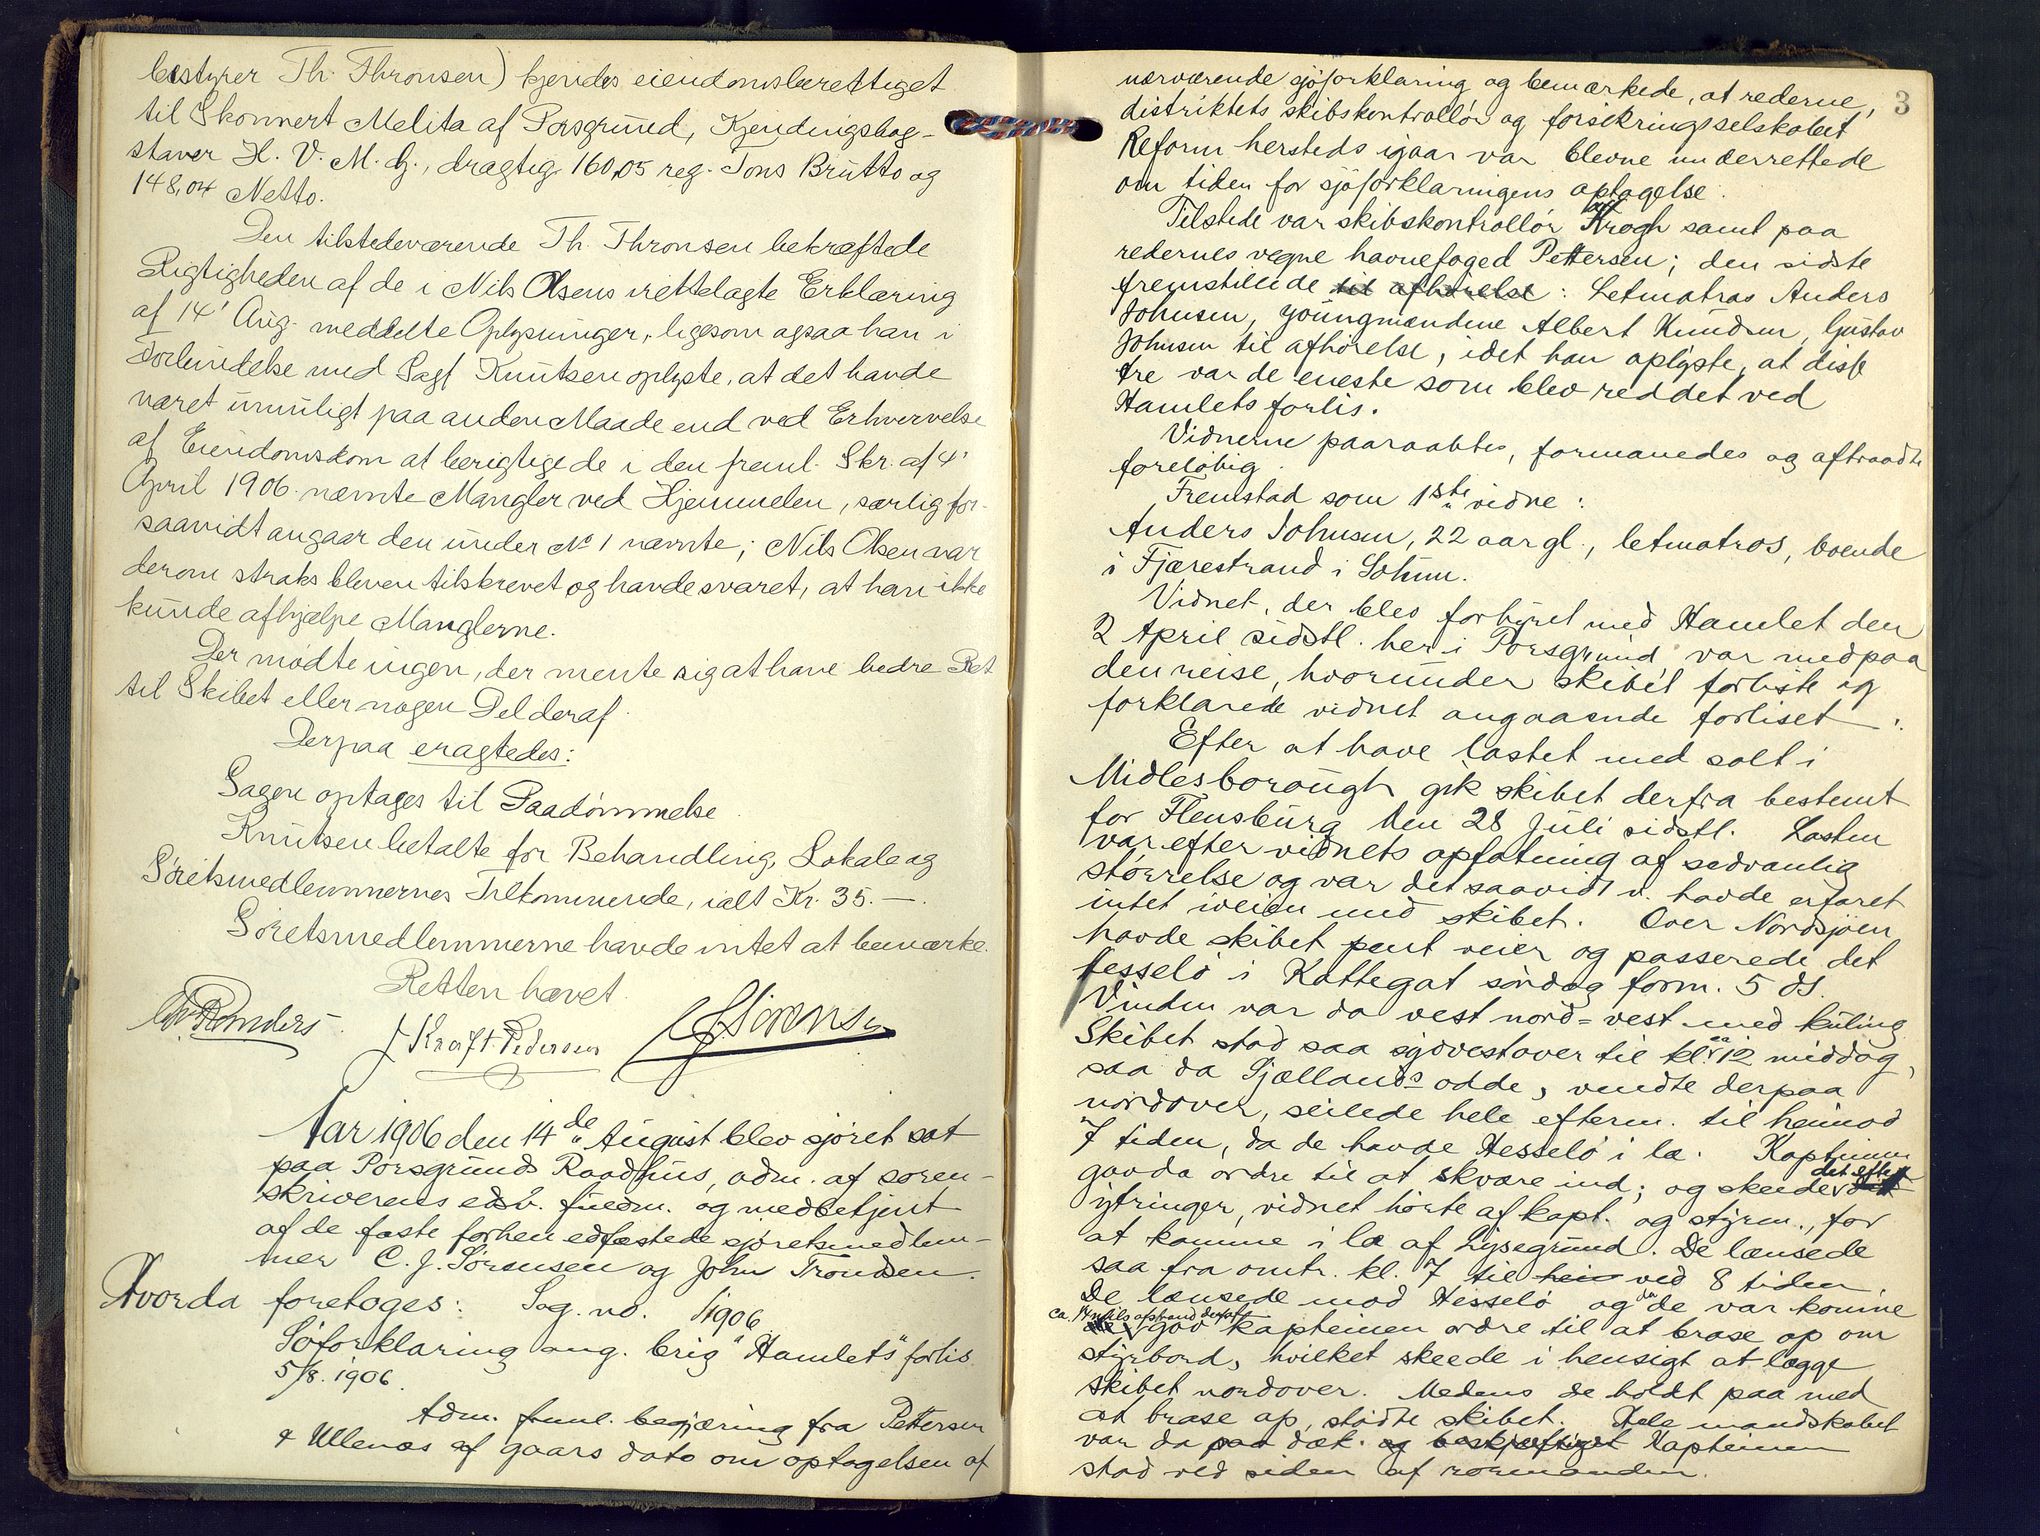 bestyrer Th. Thronsen) kjendes eiendomsberettiget
til Skonnert Melita af Porsgrund, Kjendingsbog-
staver H. V. M. G., drægtig 160,05 reg. Tons Brutto og
148,04 Netto.
Den tilstedeværende Th. Thronsen bekræftede
Rigtigheden af de i Nils Olsens irettelagte Erklæring
af 14' Aug. meddelte Oplysninger, ligesom ogsaa han i
Forbindelse med Sagf Knutsen oplyste, at det havde
været umuligt paa anden Maade end ved Erhvervelse
af Eiendomsdom at berigtige de i den freml. Skr. af 4'
April 1906 nævnte Mangler ved Hjemmelen, særlig for-
saavidt angaar den under No 1 nævnte; Nils Olsen var
derom straks bleven tilskrevet og havde svaret, at han ikke
kunde afhjælpe Manglerne.
Der mødte ingen, der mente sig at have bedre Ret
til Skibet eller nogen Del deraf.
Derpaa eragtedes:
Sagen optages til Paadømmelse.
Knutsen betalte for Behandling, Lokale og
Søretsmedlemmernes Tilkommende, ialt Kr. 35. —.
Søretsmedlemmerne havde intet at bemærke.
Retten hævet.
J Kraft. Pedersen CJSørensen
Aar 1906 den 14de August blev sjøret sat
paa Porsgrunds Raadhus, adm. af soren-
skriverens edsv. fuldm. og medbetjent
af de faste forhen edfæstede sjøretsmedlem-
mer C. J. Sørensen og John Trondsen.
Hvorda foretoges: Sag. no. /1906
Søforklaring ang. brig "Hamlets" forlis
5/8. 1906.
Adm. freml. begjæring fra Pettersen
& Ullenæs af gaars dato om optagelsen af
3
nærværende sjøforklaring og bemærkede, at rederne,
distriktets skibskontrollør og forsikringsselskabet
Reform hersteds igaar var blevne underrettede
om tiden for sjøforklaringens optagelse.
Tilstede var skibskontrollør Krogh samt paa
redernes vegne havnefoged Pettersen; den sidste
fremstillede til afhørelse: Letmatros Anders
Johnsen, youngmændene Albert Knudsen, Gustav
Johnsen til afhørelse, idet han oplyste, at disse
tre var de eneste som blev reddet ved
Hamlets forlis.
Vidnerne paaraabtes, formanedes og aftraadte
foreløbig.
Fremstod som 1ste vidne:
Anders Johnsen, 22 aar gl., letmatros, boende
i Fjærestrand i Søhnu.
Vidnet, der blev forhyret med Hamlet den
2 April sidstl. her i Porsgrund var med paa
den reise, hvorunder skibet forliste og
forklarede vidnet angaaende forliset:
Efter at have lastet med salt i
Midlesborough gik skibet derfra bestemt
for Flensburg den 28 Juli sidstl. Lasten
var efter vidnets opfatning af sedvanlig
størrelse og var det saavidt v. havde erfaret
intet iveien med skibet. Over Nordsjøen
havde skibet pent veier og passerede det
Hesselø i Kattegat søndag form. 5 ds.
Vinden var da vest nord=vest med kuling
Skibet stod saa sydvestover til kl. ca 12 middag,
saa da Sjællands odde, vendte derpaa
nordover, seilede hele efterm. til henimod
7 tiden, da de havde Hesselø i læ. Kapteinen
gav da ordre til at skvære ind; og skede det efter
ytringer, vidnet hørte af kapt. og styrm., for
at komme i læ af Lysegrund. De lænsede
saa fra omtr. kl. 7 til hen ved 8 tiden.
De lænsede mod Hesselø og da de var komne
ca. 1 1/2 mils afstand derfra gav kapteinen ordre til at brase op om
styrbord, hvilket skeede i hensigt at lægge
skibet nordover. Medens de holdt paa med
at brase op, stødte skibet. Hele mandskabet
var da paa dæk. og beskjæftiget Kapteinen
stod ved siden af rormanden.